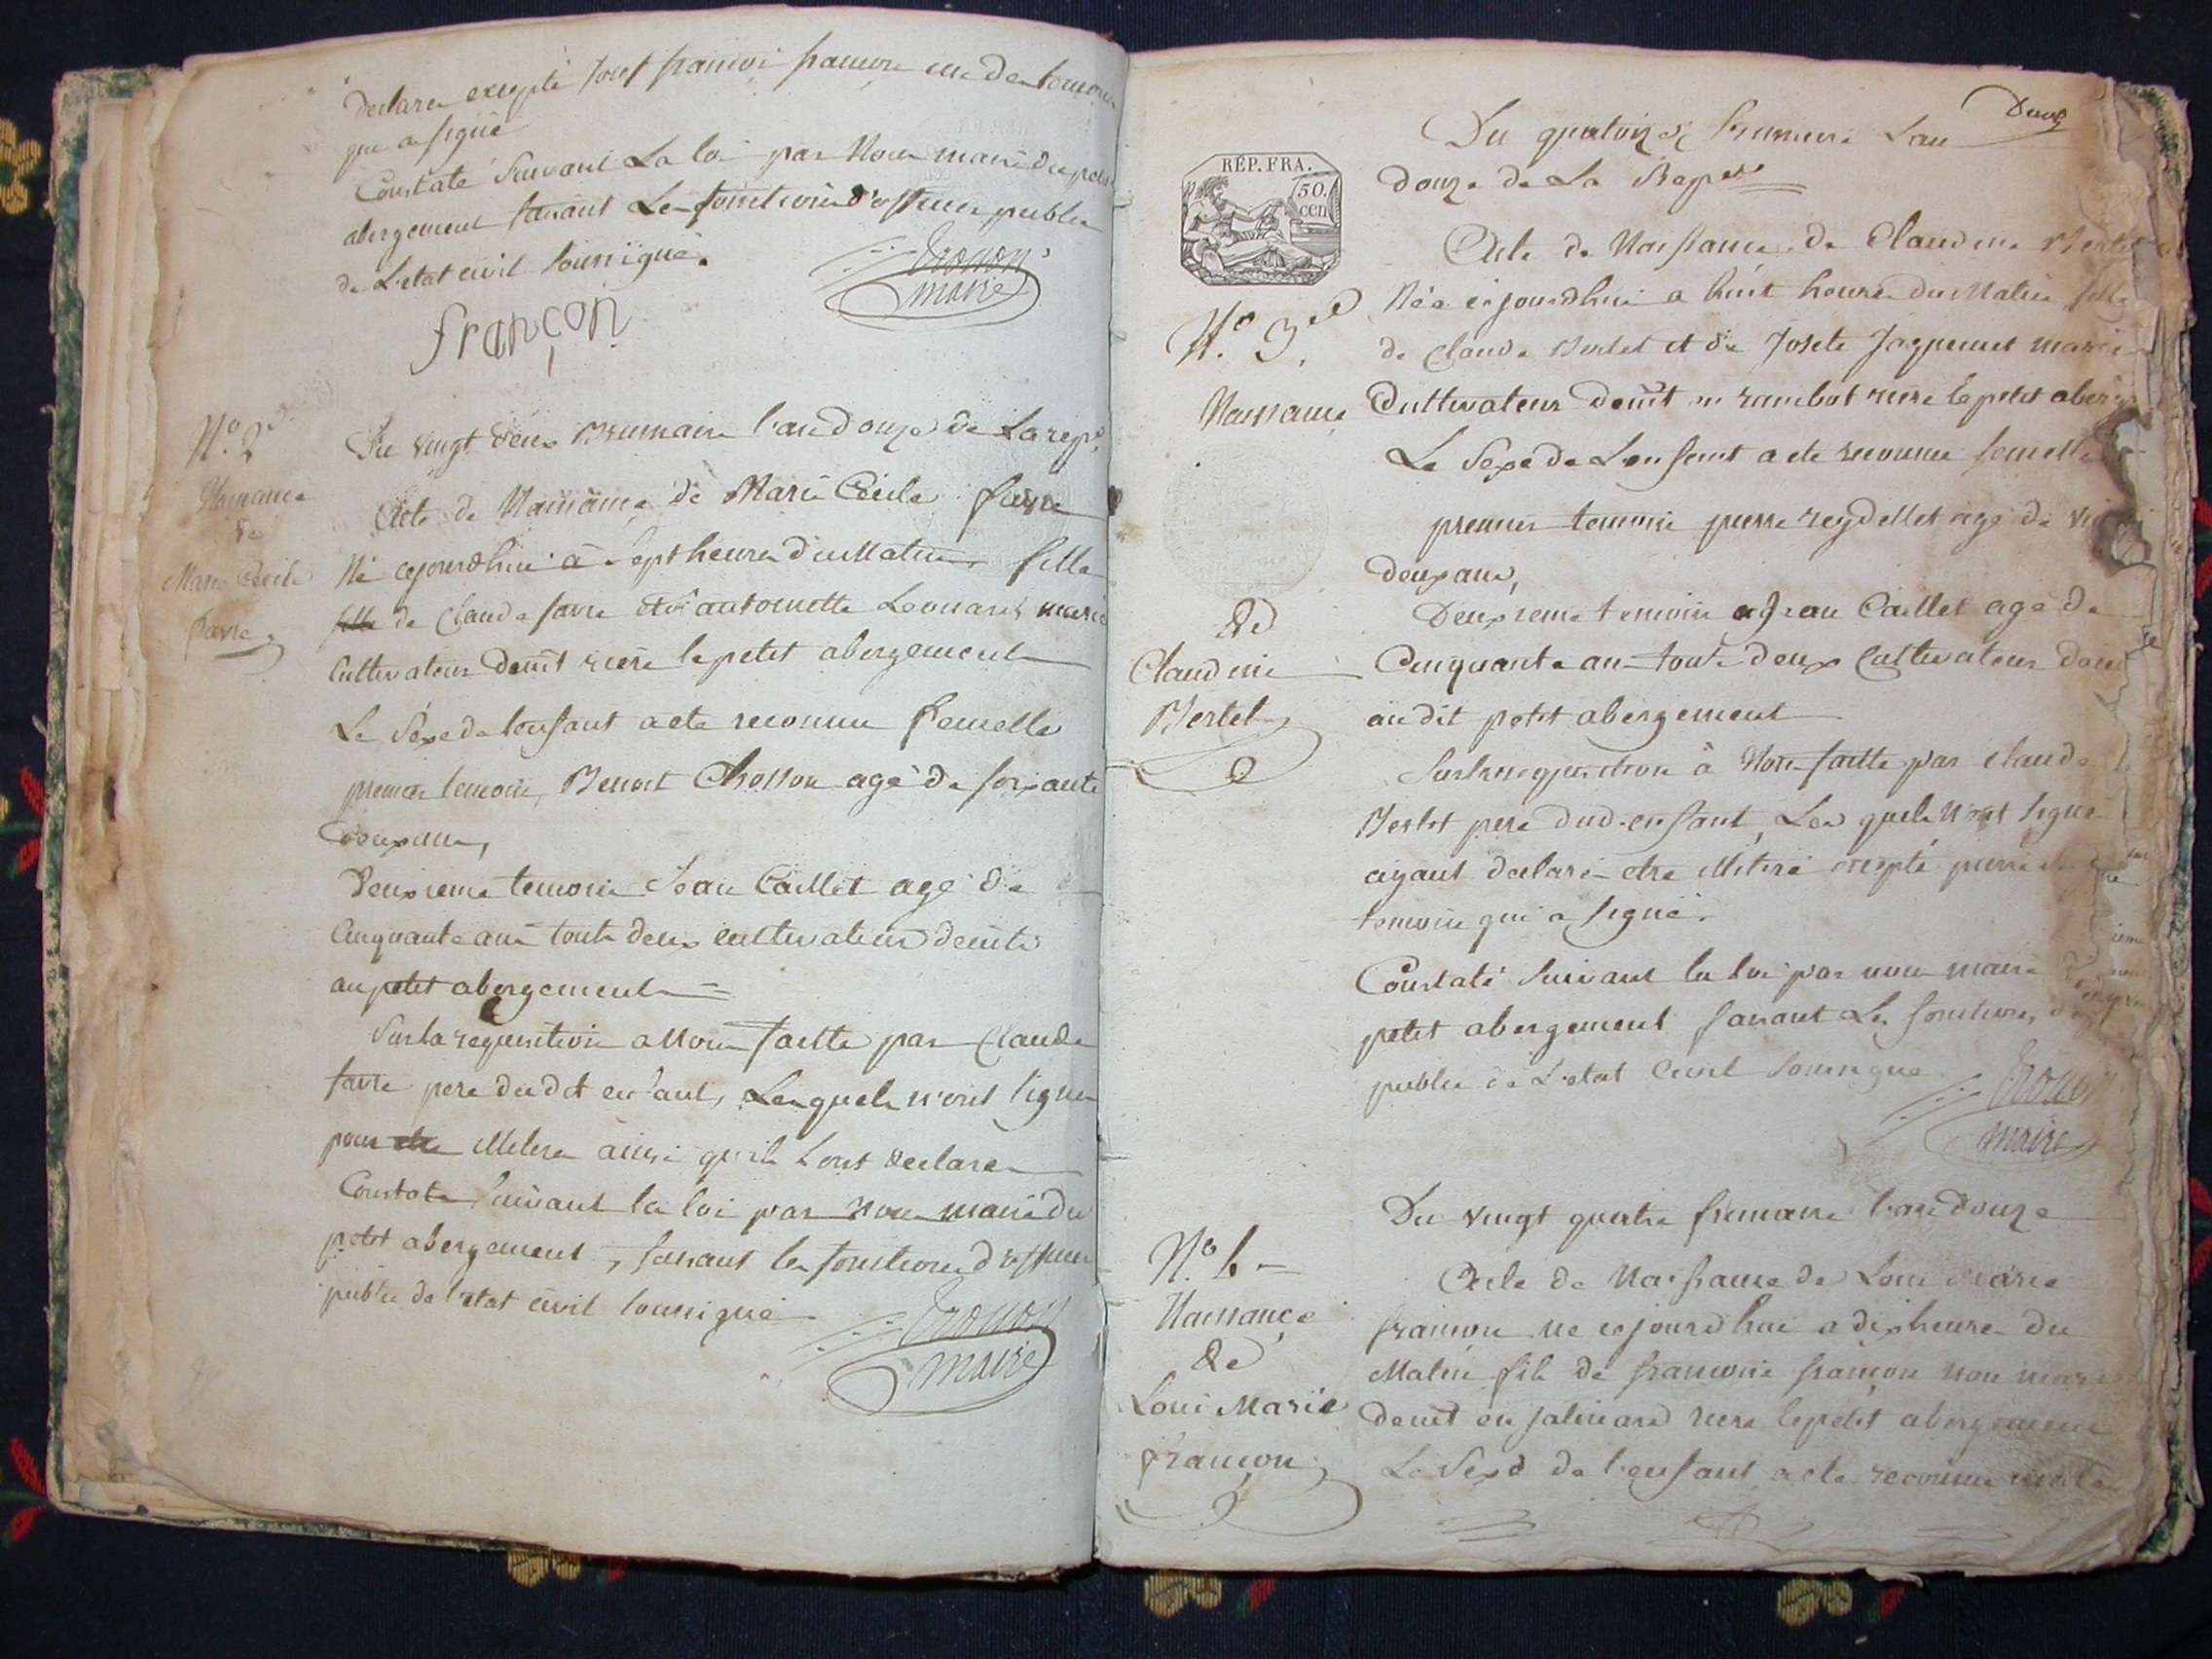 declarer excepté fransoi françon un de temoin
qui a signé
Constaté Suivant La loi par Nous maire du petit
abergement faisant Les fonctions d'officier public
de L'etat civil soussigné.
maire
françon
N.º 2
Naissance
de
Marie Cécile
favre
Du vingt deux Brumaire l'an douze de La rep.
Acte de Naissance de Marie Cécile favre
Né cejourdhui à sept heures du Matin fille
de Claude favre et de antoinette Leonard marié
Cultivateur demt riere le petit abergement
Le Sexe de lenfant a ete reconnu femelle
premier temoin, Benoit Chosson agé de soixante
deux ans,
Deuxieme temoin Jean Caillet agé de
Cinquante ans touts deux cultivateurs demts
au petit abergement
Sur la requisition a Nous faitte par Claude
favre pere dudit enfant, Lesquels n'ont signer
pour Iliterer ainsi qu'ils L'ont declarer
Constater suivant la loi par nous maire du
petit abergement, faisant les fonctions d'officier
public de l'etat civil soussigné
maire
Deux
Du quatorze frimaire L'an
douze de La Rep
RÉP. FRA.
50.
cen
Acte de Naissance de Claudine Bertet
Née cejourdhui a huit heures du Matin fille
N.º 3.
de Claude Bertet et de Josete Jaquemet marié
Naissance
Cultivateur demt en rambot riere le petit aber
Le Sexe de L'enfant a ete reconnu femelle
premier temoin pierre reydellet agé de
deux ans,
de
Deuxieme temoin Jean Caillet agé de
Claudine
Cinquante ans touts deux Cultivateurs
Bertet
au dit petit abergement
Sur la requisition à Nous faitte par claude
Bertet pere dud. enfant, Les quels N'ont signé
ayant declarer etre Iliteré excepté pierre
temoin qui a signé.
Constaté suivant la loi par nous maire
petit abergement faisant Les fonctions
public de L'etat Civil soussigné
maire
Du vingt quatre frimaire l'an douze
N.º
Acte de Naissance de Loui Marie
Naissance
françon né cejourdhui a dix heures du
de
Matin fils de françoise françon non
Loui Marie
demt en jalinard riere le petit abergement
françon
Le Sexe de l'enfant a ete reconnu